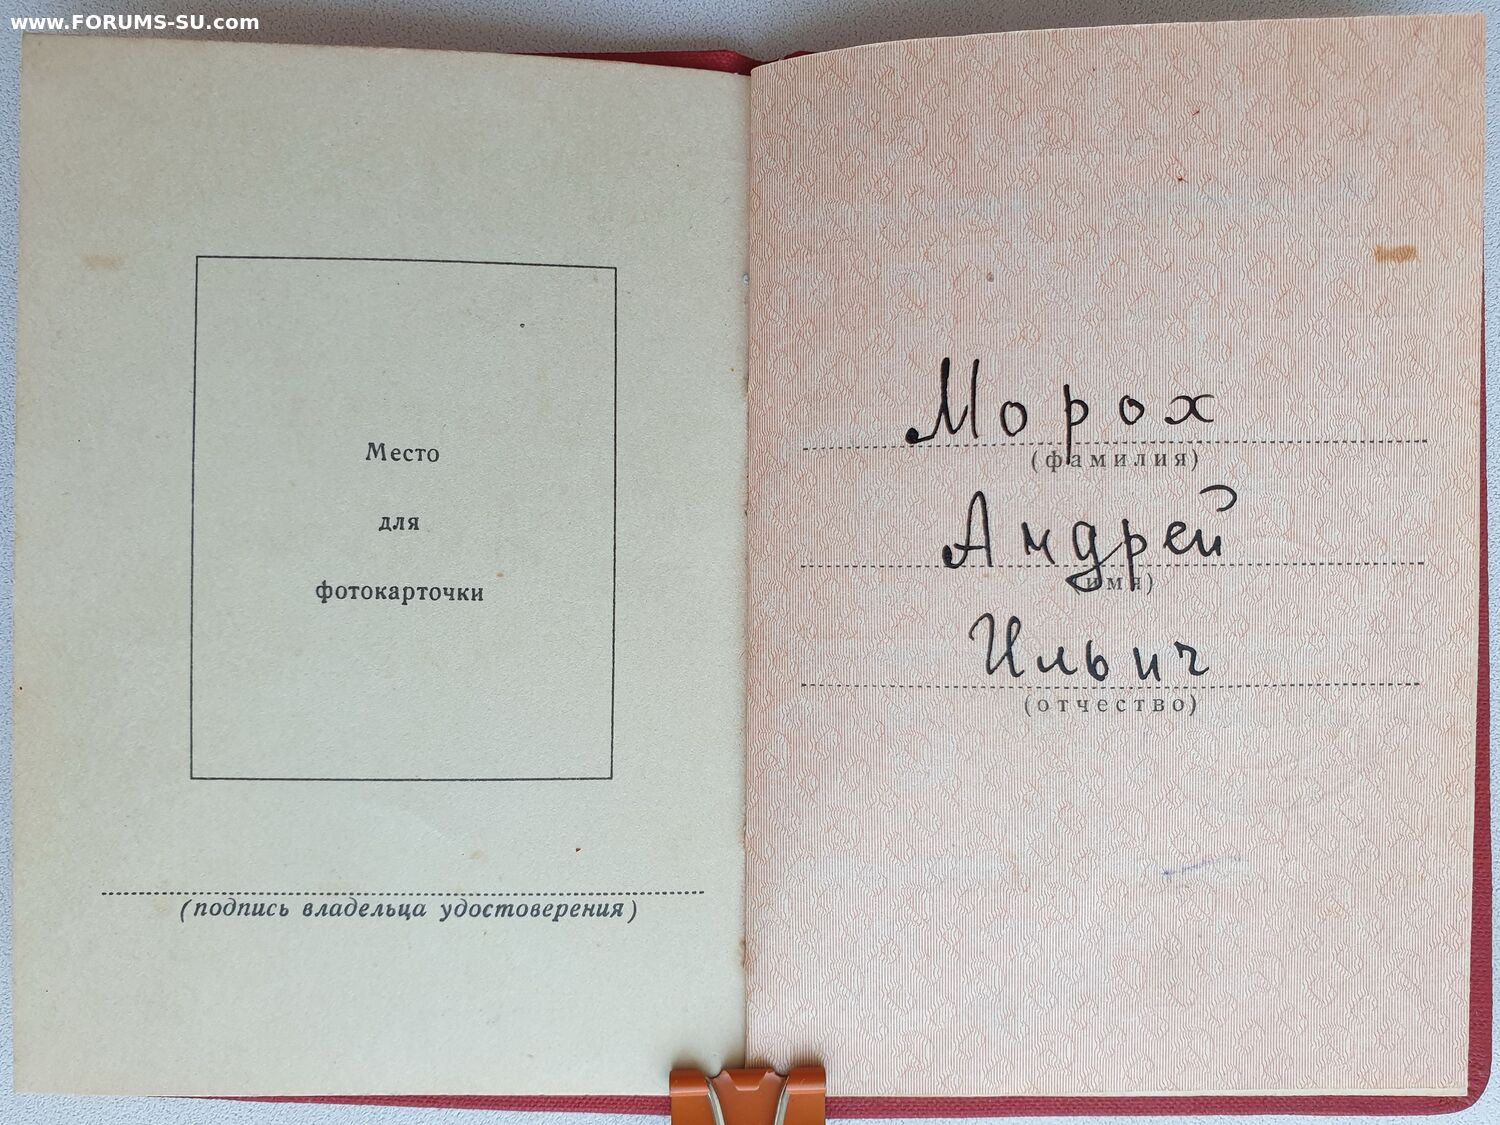 www.FORUMS-SU.com
Место
для
фотокарточки
(подпись владельца удостоверения)
Морох
(фамилия)
Андрей
(имя)
Ильич
(отчество)